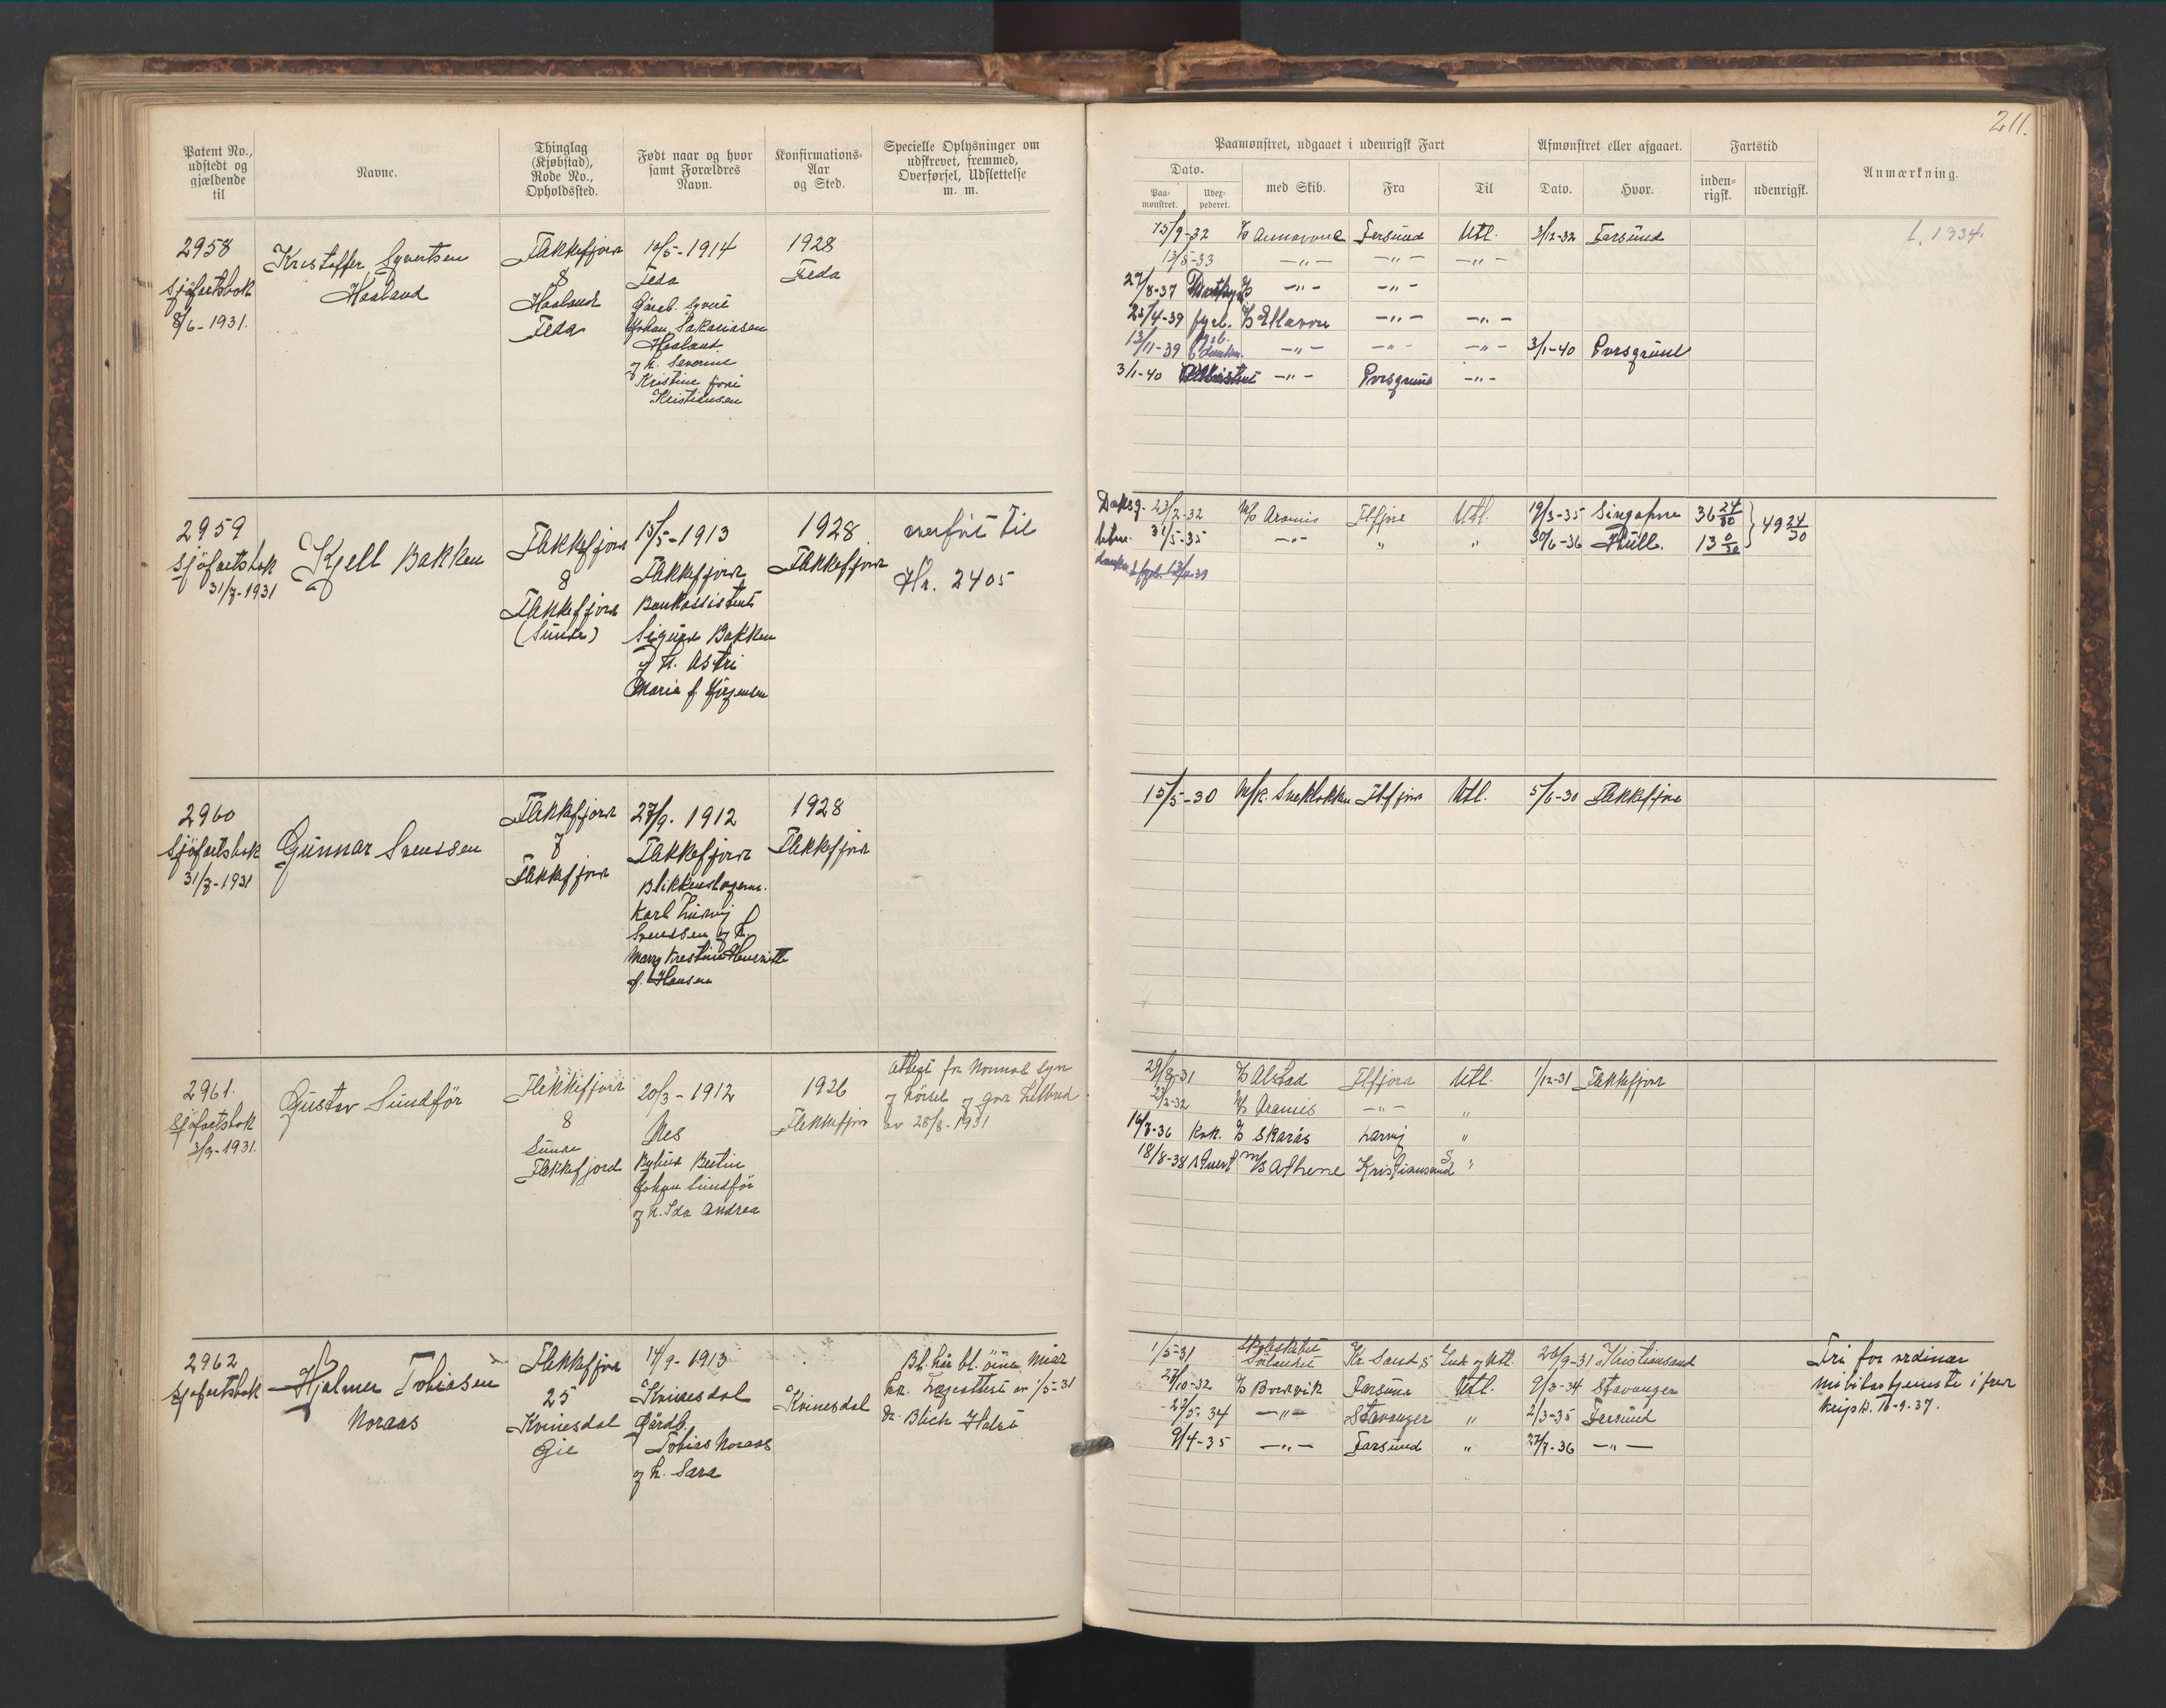 211.
Patent No., udstedt og gjældende til
Navne.
Thinglag (Kjøbstad), Rode No., Opholdssted.
Født naar og hvor samt Forældres Navn.
Konfirmations-Aar og Sted.
Specielle Oplysninger om udskrevet, fremmed, Overførsel, Udslettelse m. m.
Paamønstret, udgaaet i udenrigsk Fart
Dato.
Paa-mønstret.
Udex-pederet.
med Skib.
Fra
Til
Afmønstret eller afgaaet.
Dato.
Hvor.
Fartstid
inden-rigsk.
udenrigsk.
Anmærkning.
2958
Sjøfartsbok
8/6-1931.
Kristoffer Syvertsen
Haaland
Flekkefjord
8
Haaland
Feda
10/5-1914
Feda
Gårdb. Syvert
Johan Sakariasen
Haaland
og h. Severine
Kristine født
Kristiansen
1928
Feda
15/9-32 Farsund Utl. 3/12-32 Farsund
13/5-33 -"- -"- -"-
27/8-37 -"- -"-
25/4-39 fyrb. -"- -"-
13/11-39 -"- -"- -"- 3/1-40 Porsgrund
3/1-40 -"- Porsgrund -"-
1934.
2959
Sjøfartsbok
31/7-1931
Kjell Bakken
Flekkefjord
8
Flekkefjord
(Sunde)
15/5-1913
Flekkefjord
Bankassistent
Sigurd Bakken
og h. Astri
Marie f. Jörgensen
1928
Flekkefjord
overført til
Nr. 2405
23/2-32 M/S Aramis Flfjord Utl. 19/3-35 Singapore 36 24/30
31/5-35 -"- " " 30/6-36 Hull. 13 0/30
49 24/30
2960
Sjøfartsbok
31/7-1931
Gunnar Svendsen
Flekkefjord
7
Flekkefjord
27/9-1912
Flekkefjord
Blikkenslagerm.
Karl Ludvig
Svendsen og h.
Marry Kristine Henriette
f. Hansen
1928
Flekkefjord
15/5-30 M/k. Flfjord Utl. 5/6-30 Flekkefjord
2961.
Sjøfartsbok
3/9-1931.
Gustav Sundför
Flekkefjord
8
Sunde
Flekkefjord
20/3-1912
Nes
Bybud Bertin
Johan Sundför
og h. Ida Andrea
1926
Flekkefjord
Attest for Normal Syn
og hörsel og
av 28/8-1931
29/8-31 Alstad Flfjord Utl. 1/12-31 Flekkefjord
2/2-32 M/S Aramis -"- "
16/7-36 Kok. Skarås Larvig "
18/8-38 M/S Athene Kristiansand S "
2962
Sjøfartsbok
Hjalmer Tobiasen
Noraas
Flekkefjord
25
Kvinesdal
Gie
14/9-1913
Kvinesdal
Gårdb.
Tobias Noraas
og h. Sara
Kvinesdal
Bl. hår bl. öine
Lægeattest av 1/5-31
Dr. Blich Holst
1/5-31 Skoleskibet Sörlandet Kr. Sand S Inl. og Utl. 26/9-31 Kristiansand
27/10-32 Borgvik Farsund Utl. 9/3-34 Stavanger
22/5-34 -"- Stavanger " 2/3-35 Farsund
9/4-35 -"- Farsund " 27/7-36 -"-
Fri for ordinær
militærtjeneste i fred
16-9-37.